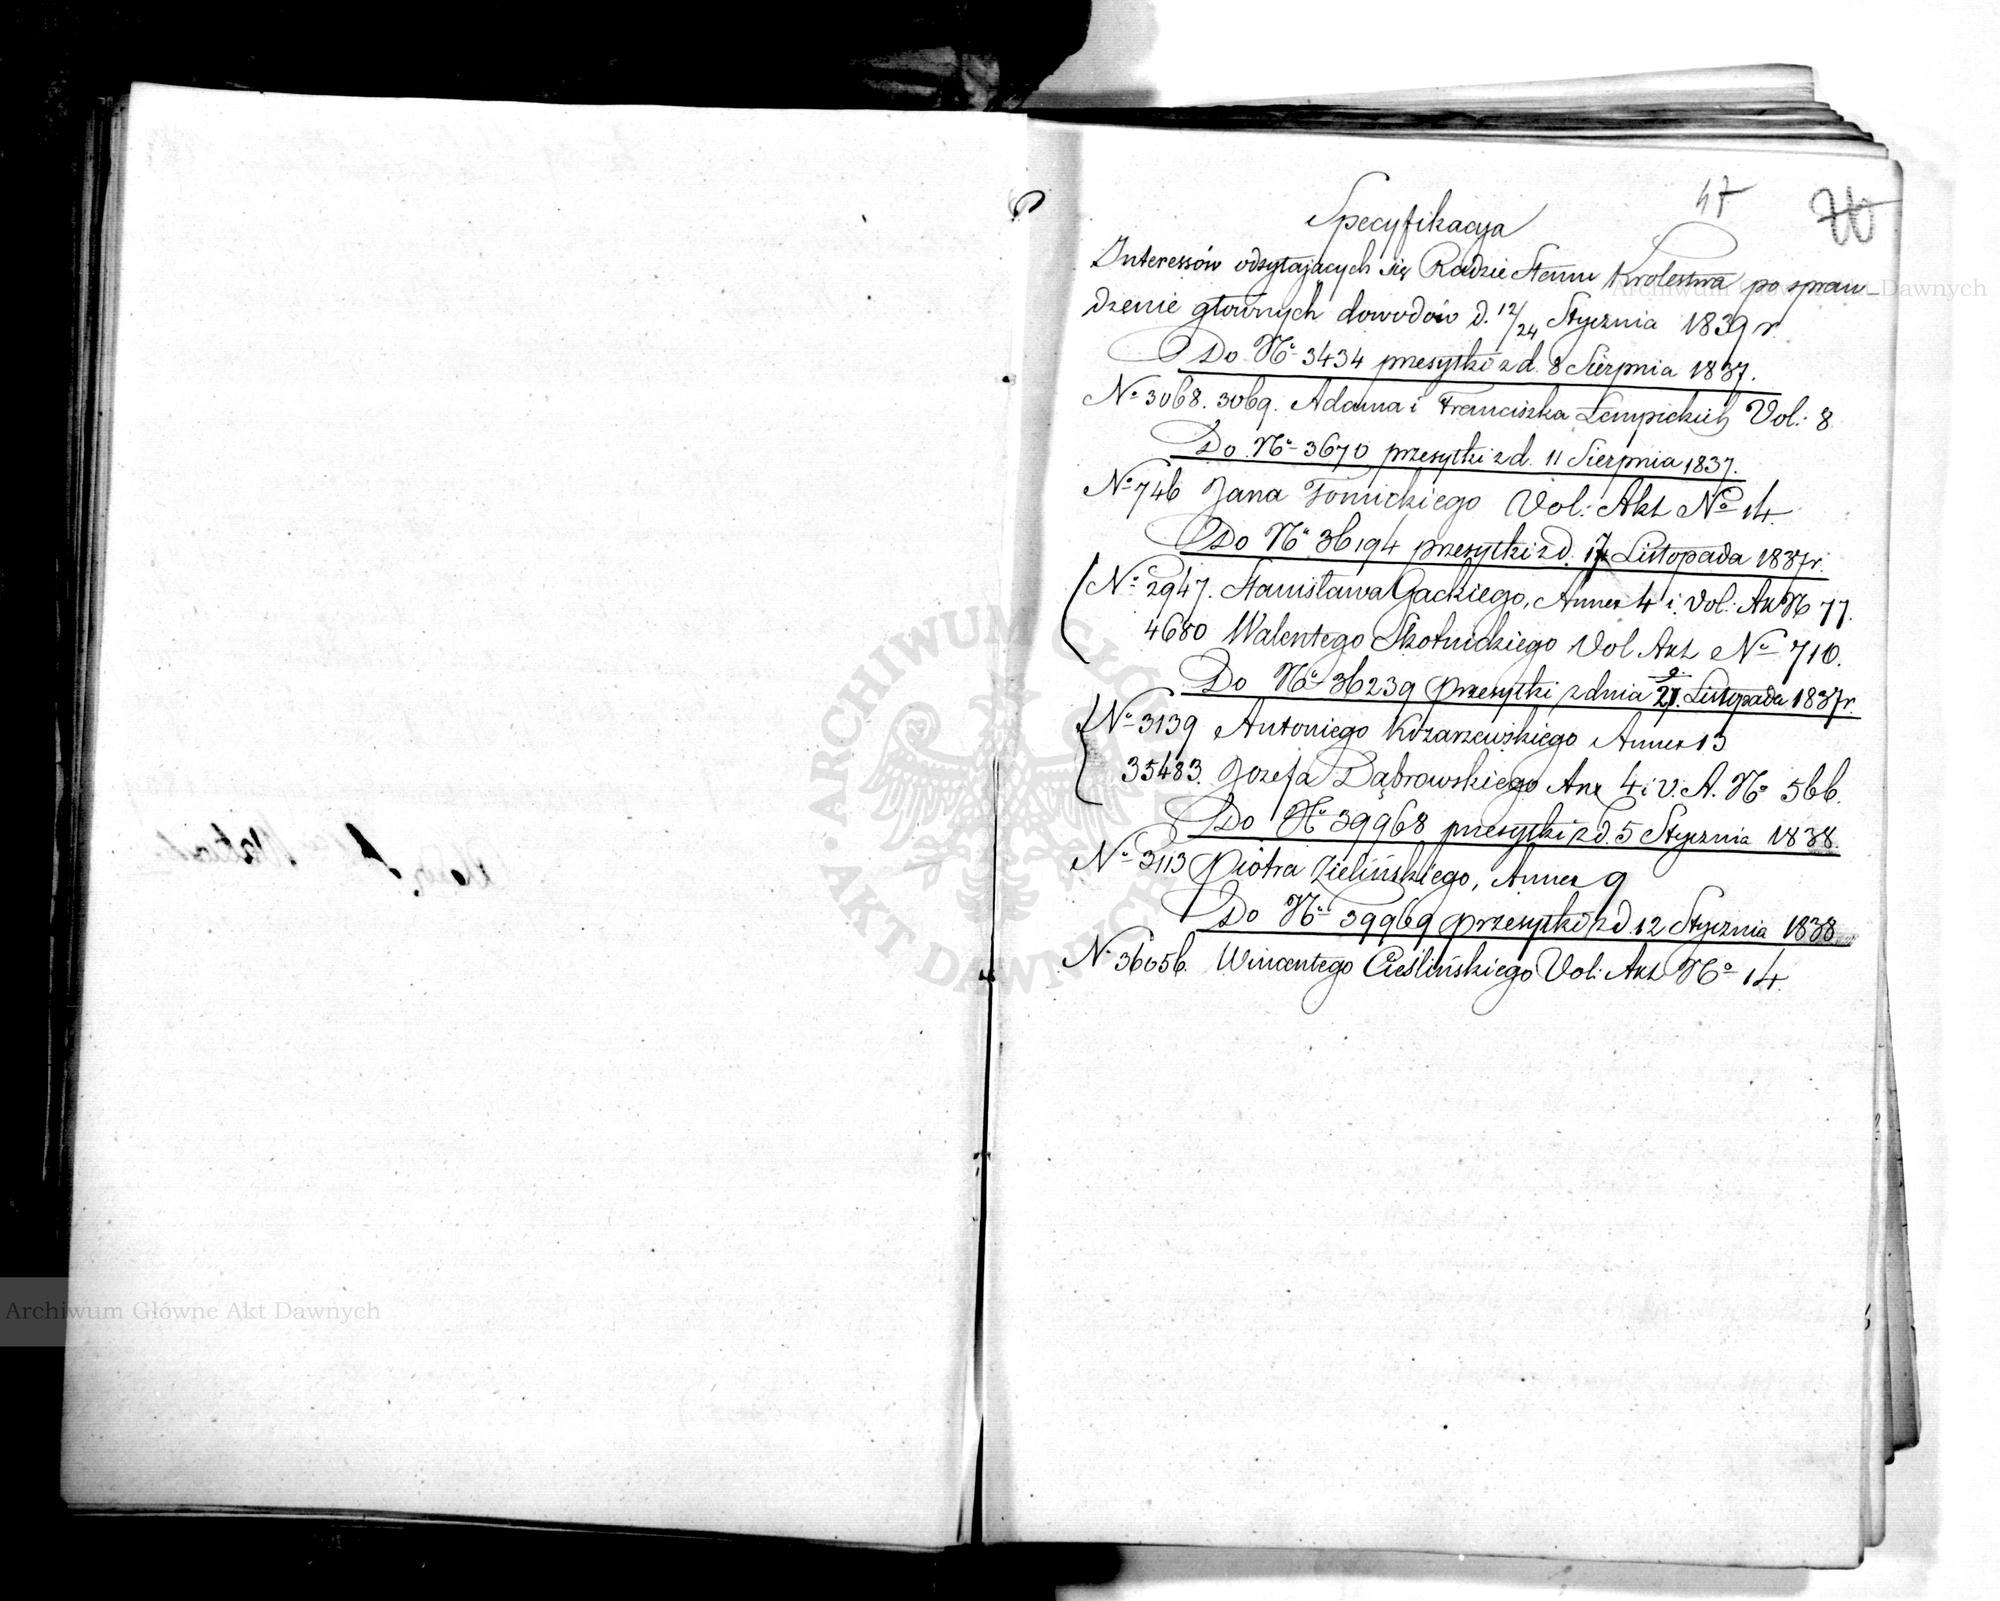 47
Specyfikacya
Interessów odsyłających się Radzie Stanu Królestwa po spraw-
dzenie głównych dowodów d. 12/24 Stycznia 1839 r.
Do No 3434 przesyłki z d. 8 Sierpnia 1837.
No 3068. 3069. Adama i Franciszka Lempickich Vol: 8
Do No 3670 przesyłki z d. 11 Sierpnia 1837.
No 746 Jana Tomickiego Vol: Akt No 14.
Do No 36194 przesyłki z d. 17 Listopada 1837 r.
No 2947. Stanisława Gackiego, Annex 4 i Vol: Ak No 77.
4680 Walentego Skotnickiego Vol Akt No 710.
Do No 36239 przesyłki z dnia 21. Listopada 1837 r.
No 3139 Antoniego Kozarzewskiego Annex 13
35483. Jozefa Dąbrowskiego Anx 4 i V. A. No 566.
Do No 39968 przesyłki z d. 5 Stycznia 1838.
No 3113 Piotra Zielińskiego, Annex 9
Do No 39969 przesyłki z d. 12 Stycznia 1838
No 36056. Wincentego Cieślińskiego Vol: Akt No 14.
ARCHIWUM GŁÓWNE AKT DAWNYCH
Archiwum Główne Akt Dawnych
Archiwum Główne Akt Dawnych